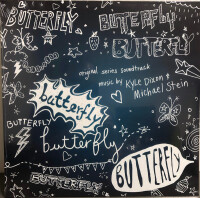 BUTTERFLY
BUTTERFLY
BUTTERFLY
original series soundtrack
music by Kyle Dixon &
Michael Stein
butterfly
BUTTERFLY
butterfly
BUTTERFLY
BUTTERFLY